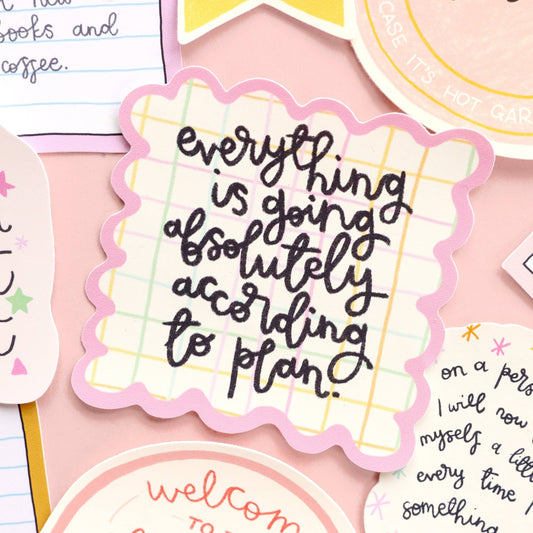 books and
coffee.
CASE IT'S HOT GAR
everything
is going
absolutely
according
to plan.
on a pers
I will now
myself a little
every time I
something
welcom
TO T